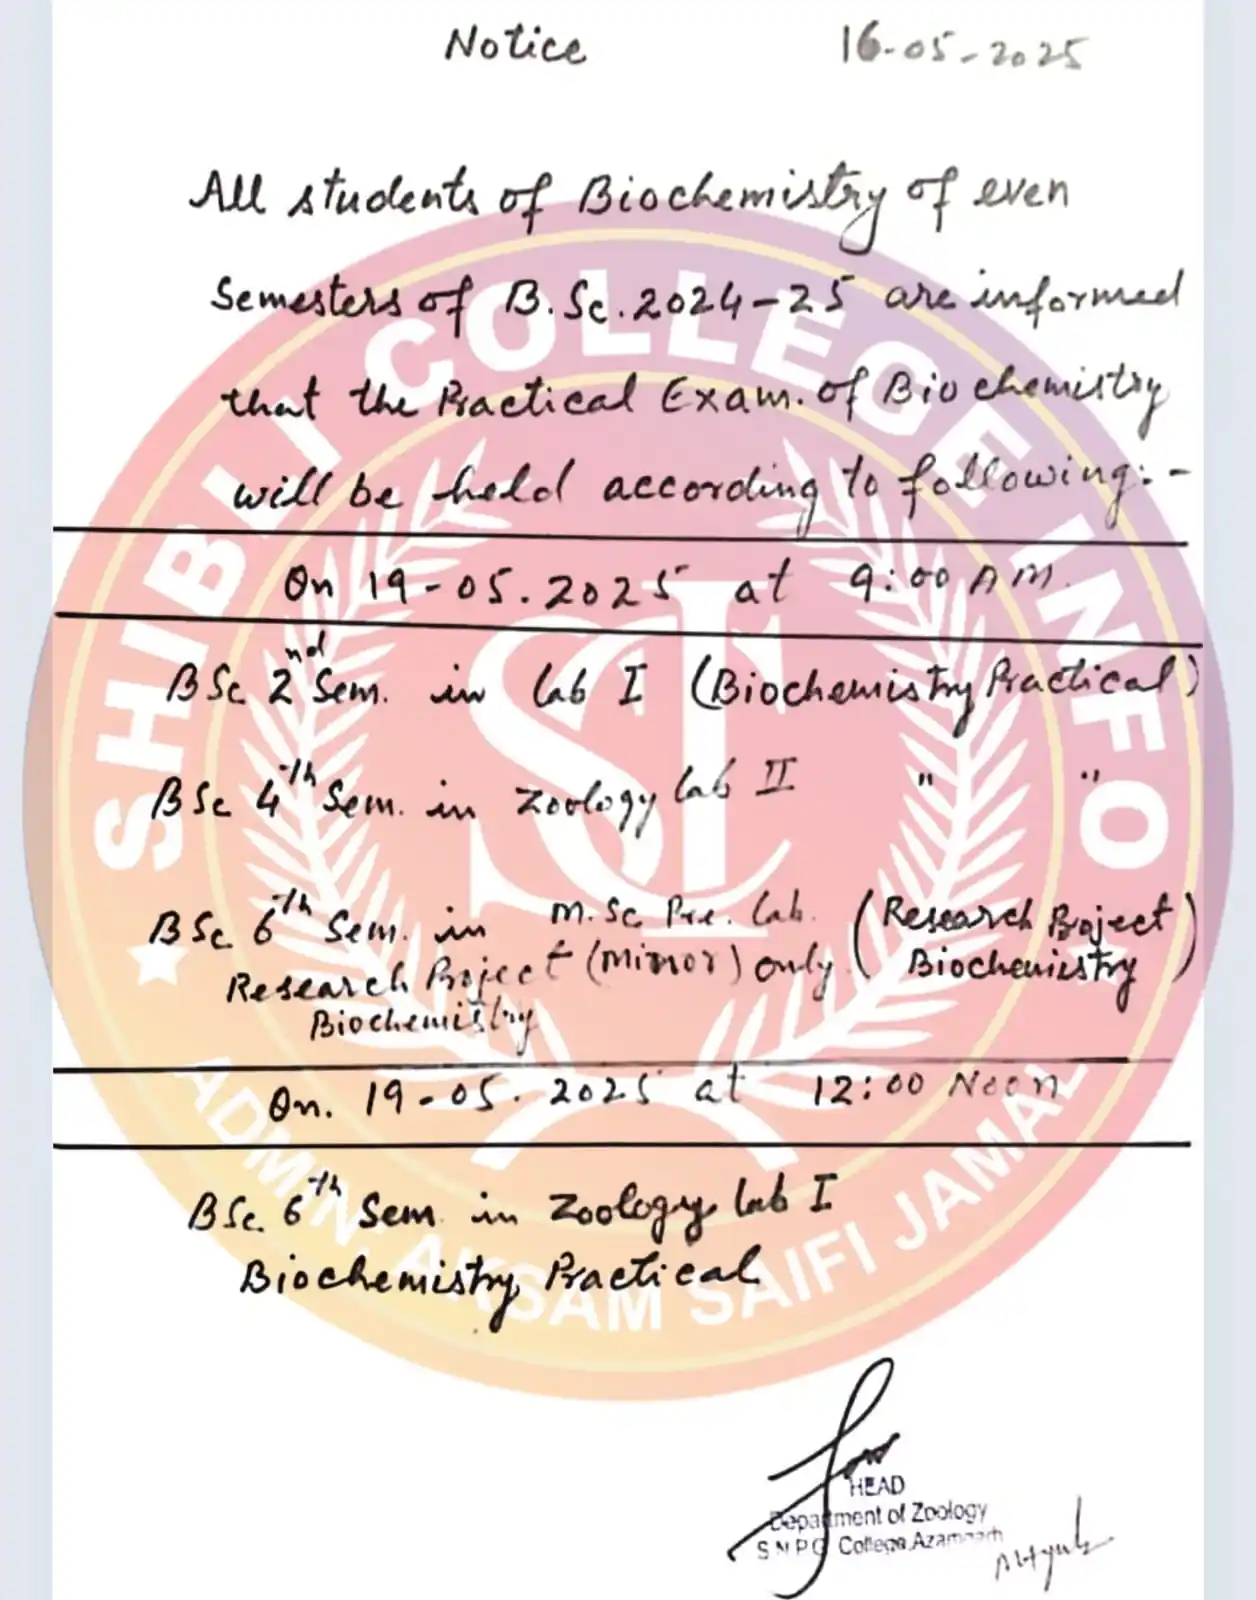 Notice 16-05-2025
All students of Biochemistry of even
Semesters of B.Sc. 2024-25 are informed
that the Practical Exam. of Biochemistry
will be held according to following:-
On 19-05.2025 at 9:00 AM.
BSc 2nd Sem. in Lab I (Biochemistry Practical)
BSc 4th Sem. in Zoology Lab II " "
BSc 6th Sem. in M.Sc Pre. Lab. (Research Project
Research Project (Minor) only Biochemistry)
Biochemistry
On. 19-05. 2025 at 12:00 Noon
BSc. 6th Sem in Zoology Lab I
Biochemistry Practical
HEAD
Department of Zoology
S.N.P.G. College, Azamgarh
SHIBLI COLLEGE INFO
SCI
ADMIN. AKSAM SAIFI JAMAL